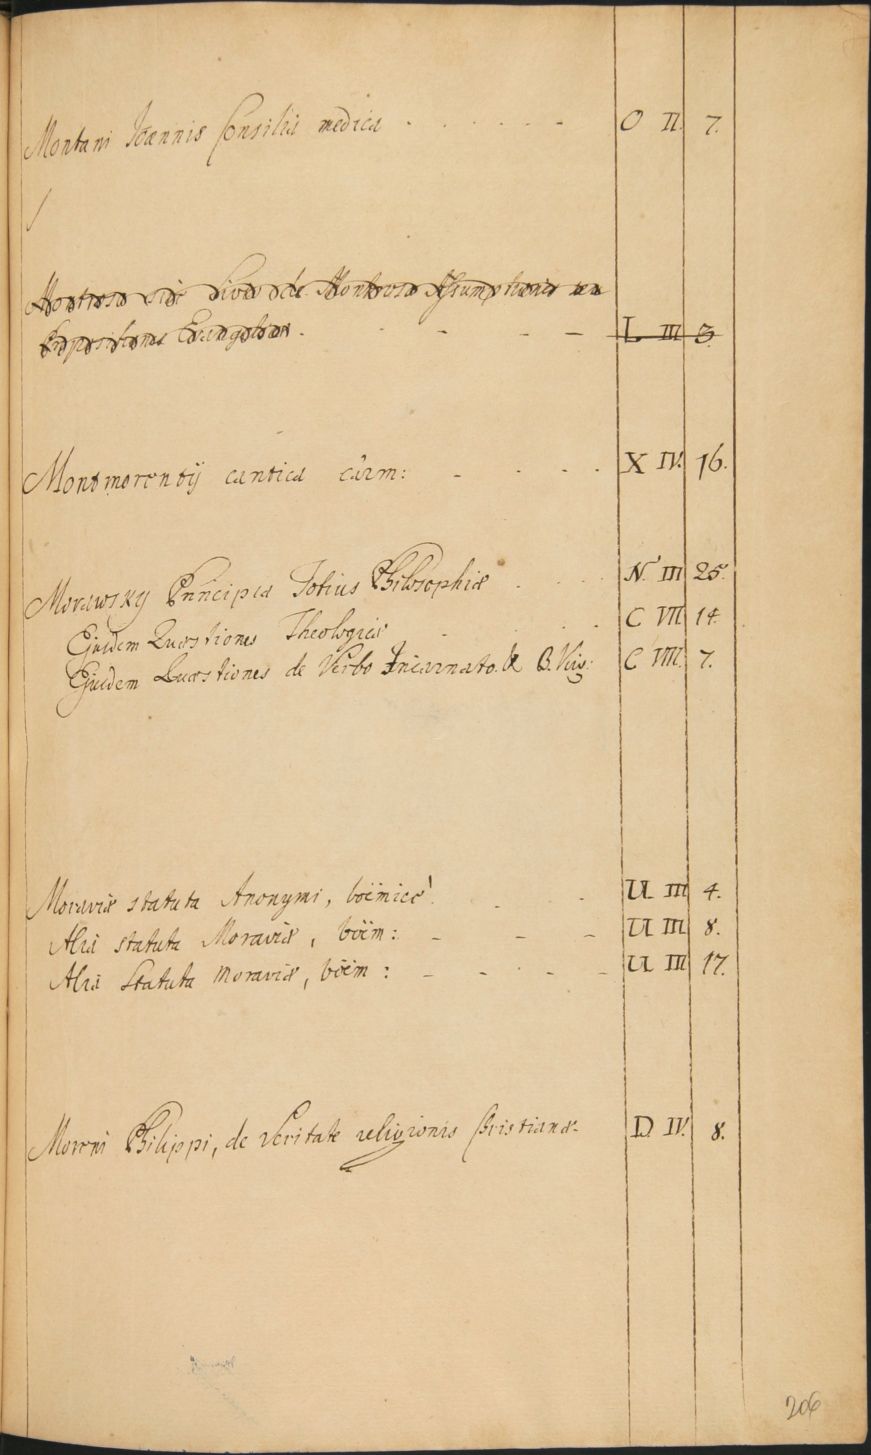 Montani Joannis Consilia medica - . . . . - - O II. 7.
Montrosa sive Assumptionis
Expositiones . - - - L III 3.
Montmorentij cantica cãrm: - - - . X IV. 16.
Morawsky Principia Totius Philosophiæ . . . N. III 25.
Ejusdem Quæstiones Theologicæ - . . . C VII 14.
Ejusdem Quæstiones de Verbo Incarnato. & B. C VIII. 7.
Moraviæ statuta Anonymi, boëmicè. - - U III 4.
Alia statuta Moraviæ, boëm: - - - U III 8.
Alia Statuta Moraviæ, boëm: - - - - U III 17.
Moreni Philippi, de Veritate religionis Christianæ. D IV. 8.
206